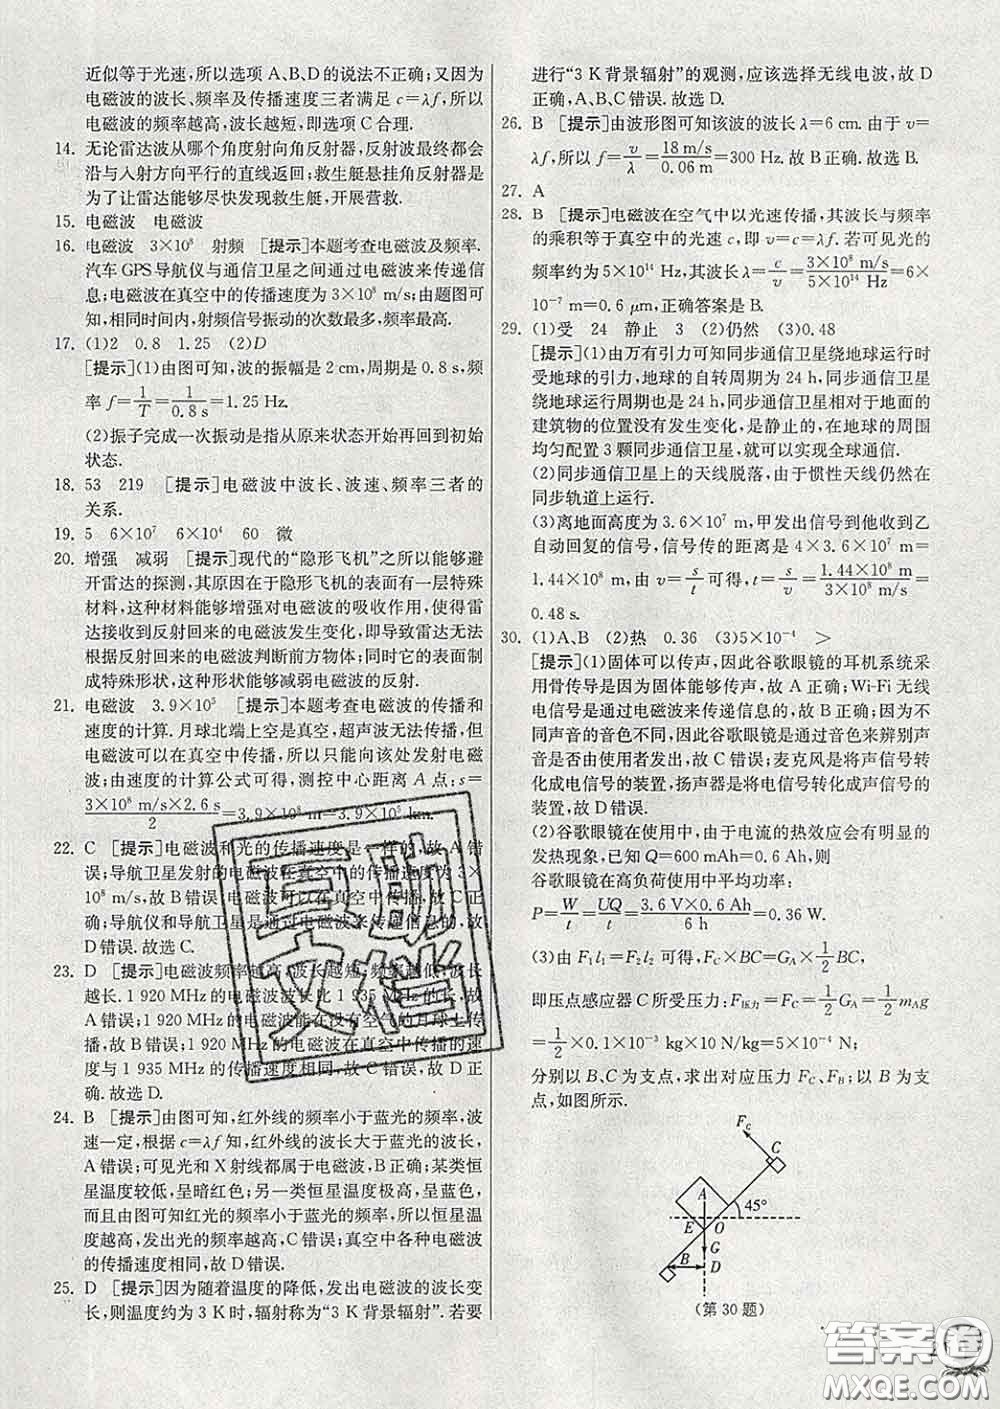 近似等于光速,所以选项A、B、D的说法不正确;又因为
电磁波的波长、频率及传播速度三者满足c=λf,所以
电磁波的频率越高,波长越短,即选项C合理.
14. 无论雷达波从哪个角度射向角反射器,反射波最终都会
沿与入射方向平行的直线返回;救生艇悬挂角反射器是
为了让雷达能够尽快发现救生艇,开展营救.
15. 电磁波 电磁波
16. 电磁波 3×10⁸ 射频 [提示]本题考查电磁波及频率.
汽车GPS导航仪与通信卫星之间通过电磁波来传递信
息;电磁波在真空中的传播速度为3×10⁸ m/s;由题图可
知,相同时间内,射频信号振动的次数最多,频率最高.
17. (1)2 0.8 1.25 (2)D
[提示](1)由图可知,波的振幅是2 cm,周期是0.8 s,频
率f=1/T=1/0.8 s=1.25 Hz.
(2)振子完成一次振动是指从原来状态开始再回到初始
状态.
18. 53 219 [提示]电磁波中波长、波速、频率三者的
关系.
19. 5 6×10⁷ 6×10⁴ 60 微
20. 增强 减弱 [提示]现代的“隐形飞机”之所以能够避
开雷达的探测,其原因在于隐形飞机的表面有一层特殊
材料,这种材料能够增强对电磁波的吸收作用,使得雷
达接收到反射回来的电磁波发生变化,即导致雷达无法
根据反射回来的电磁波判断前方物体;同时它的表面制
成特殊形状,这种形状能够减弱电磁波的反射.
21. 电磁波 3.9×10⁵ [提示]本题考查电磁波的传播和
速度的计算. 月球北端上空是真空,超声波无法传播,但
电磁波可以在真空中传播,所以只能向该处发射电磁
波;由速度的计算公式可得,测控中心距离A点:s=
3×10⁸ m/s×2.6 s/2=3.9×10⁸ m=3.9×10⁵ km.
22. C [提示]电磁波和光的传播速度是一样的,故A错
误;导航卫星发射的电磁波在真空中的传播速度为3×
10⁸ m/s,故B错误;电磁波可以在真空中传播,故C正
确;导航仪和导航卫星是通过电磁波来传递信息的,故
D错误.故选C.
23. D [提示]电磁波频率越高,波长越短,频率越低,波长
越长. 1 920 MHz的电磁波波长比1 935 MHz的长,故
A错误;1 920 MHz的电磁波能在没有空气的月球上传
播,故B错误;1 920 MHz的电磁波在真空中传播的速
度与1 935 MHz的传播速度相同,故C错误,故D正
确.故选D.
24. B [提示]由图可知,红外线的频率小于蓝光的频率,波
速一定,根据c=λf知,红外线的波长大于蓝光的波长,
A错误;可见光和X射线都属于电磁波,B正确;某类恒
星温度较低,呈暗红色;另一类恒星温度极高,呈蓝色,
而且由图可知红光的频率小于蓝光的频率,所以恒星温
度越高,发出光的频率越高,C错误;真空中各种电磁波
的传播速度相同,故D错误.
25. D [提示]因为随着温度的降低,发出电磁波的波长变
长,则温度约为3 K时,辐射称为“3 K背景辐射”.若要
进行“3 K背景辐射”的观测,应该选择无线电波,故D
正确,A、B、C错误.故选D.
26. B [提示]由波形图可知该波的波长λ=6 cm. 由于v=
λf,所以f=v/λ=18 m/s/0.06 m=300 Hz.故B正确.故选B.
27. A
28. B [提示]电磁波在空气中以光速传播,其波长与频率
的乘积等于真空中的光速c,即v=c=λf. 若可见光的
频率约为5×10¹⁴ Hz,其波长λ=c/v=3×10⁸ m/s/5×10¹⁴ Hz=6×
10⁻⁷ m=0.6 μm,正确答案是B.
29. (1)受 24 静止 3 (2)仍然 (3)0.48
[提示](1)由万有引力可知同步通信卫星绕地球运行时
受地球的引力,地球的自转周期为24 h,同步通信卫星
绕地球运行周期也是24 h,同步通信卫星相对于地面的
建筑物的位置没有发生变化,是静止的,在地球的周围
均匀配置3颗同步通信卫星,就可以实现全球通信.
(2)同步通信卫星上的天线脱落,由于惯性天线仍然在
同步轨道上运行.
(3)离地面高度为3.6×10⁷ m,甲发出信号到他收到乙
自动回复的信号,信号传的距离至少是4×3.6×10⁷ m=
1.44×10⁸ m,由v=s/t可得,t=s/v=1.44×10⁸ m/3×10⁸ m/s=
0.48 s.
30. (1)A、B (2)热 0.36 (3)5×10⁻⁴ >
[提示](1)固体可以传声,因此谷歌眼镜的耳机系统采
用骨传导是因为固体能够传声,故A正确;Wi-Fi无线
电信号是通过电磁波来传递信息的,故B正确;因为不
同声音的音色不同,谷歌眼镜是通过音色来辨别声音
是由使用者发出,故C错误;麦克风是将声信号转
化成电信号的装置,扬声器是将电信号转化成声信号的
装置,故D错误.
(2)谷歌眼镜在使用中,由于电流的热效应会有明显的
发热现象,已知Q=600 mAh=0.6 Ah,则
谷歌眼镜在高负荷使用中平均功率:
P=W/t=UQ/t=3.6 V×0.6 Ah/6 h=0.36 W.
(3)由F₁l₁=F₂l₂可得,F_C×BC=G_A×1/2BC,
即压点感应器C所受压力:F压力=F_C=1/2G_A=1/2m_Ag
=1/2×0.1×10⁻³ kg×10 N/kg=5×10⁻⁴ N;
分别以B、C为支点,求出对应压力F_C、F_B;以B为支
点,如图所示.
F_C
C
A
45°
E O
G
B D
(第30题)
重助
文档
答案圈
MXQE.COM